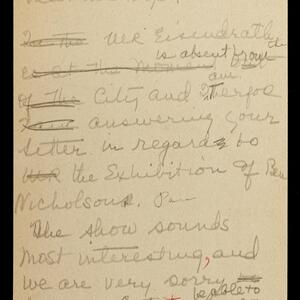 Mr Eisendrath
is absent from the
at the moment
am
of the City and I therfoe
answering your
letter in regard to
the Exhibition of Ben
Nicholson.
The show sounds
most interesting, and
we are very sorry
be able to